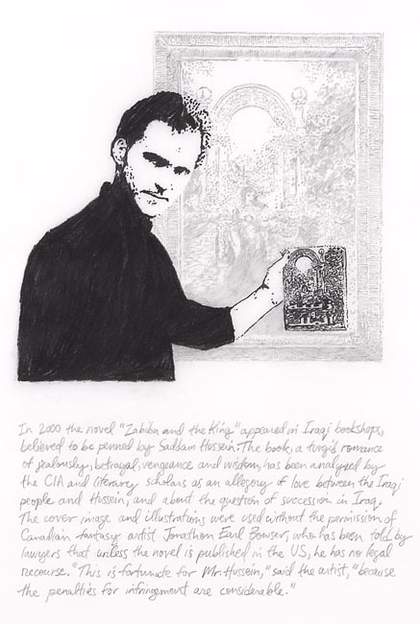 In 2000 the novel "Zabiba and the King" appeared in Iraqi bookshops,
believed to be penned by Saddam Hussein. The book, a turgid romance
of jealousy, betrayal, vengeance and wisdom, has been analyzed by
the CIA and literary scholars as an allegory of love between the Iraqi
people and Hussein, and about the question of succession in Iraq.
The cover image and illustrations were used without the permission of
Canadian fantasy artist Jonathon Earl Bowser, who has been told by
lawyers that unless the novel is published in the US, he has no legal
recourse. "This is fortunate for Mr. Hussein," said the artist, "because
the penalties for infringement are considerable."